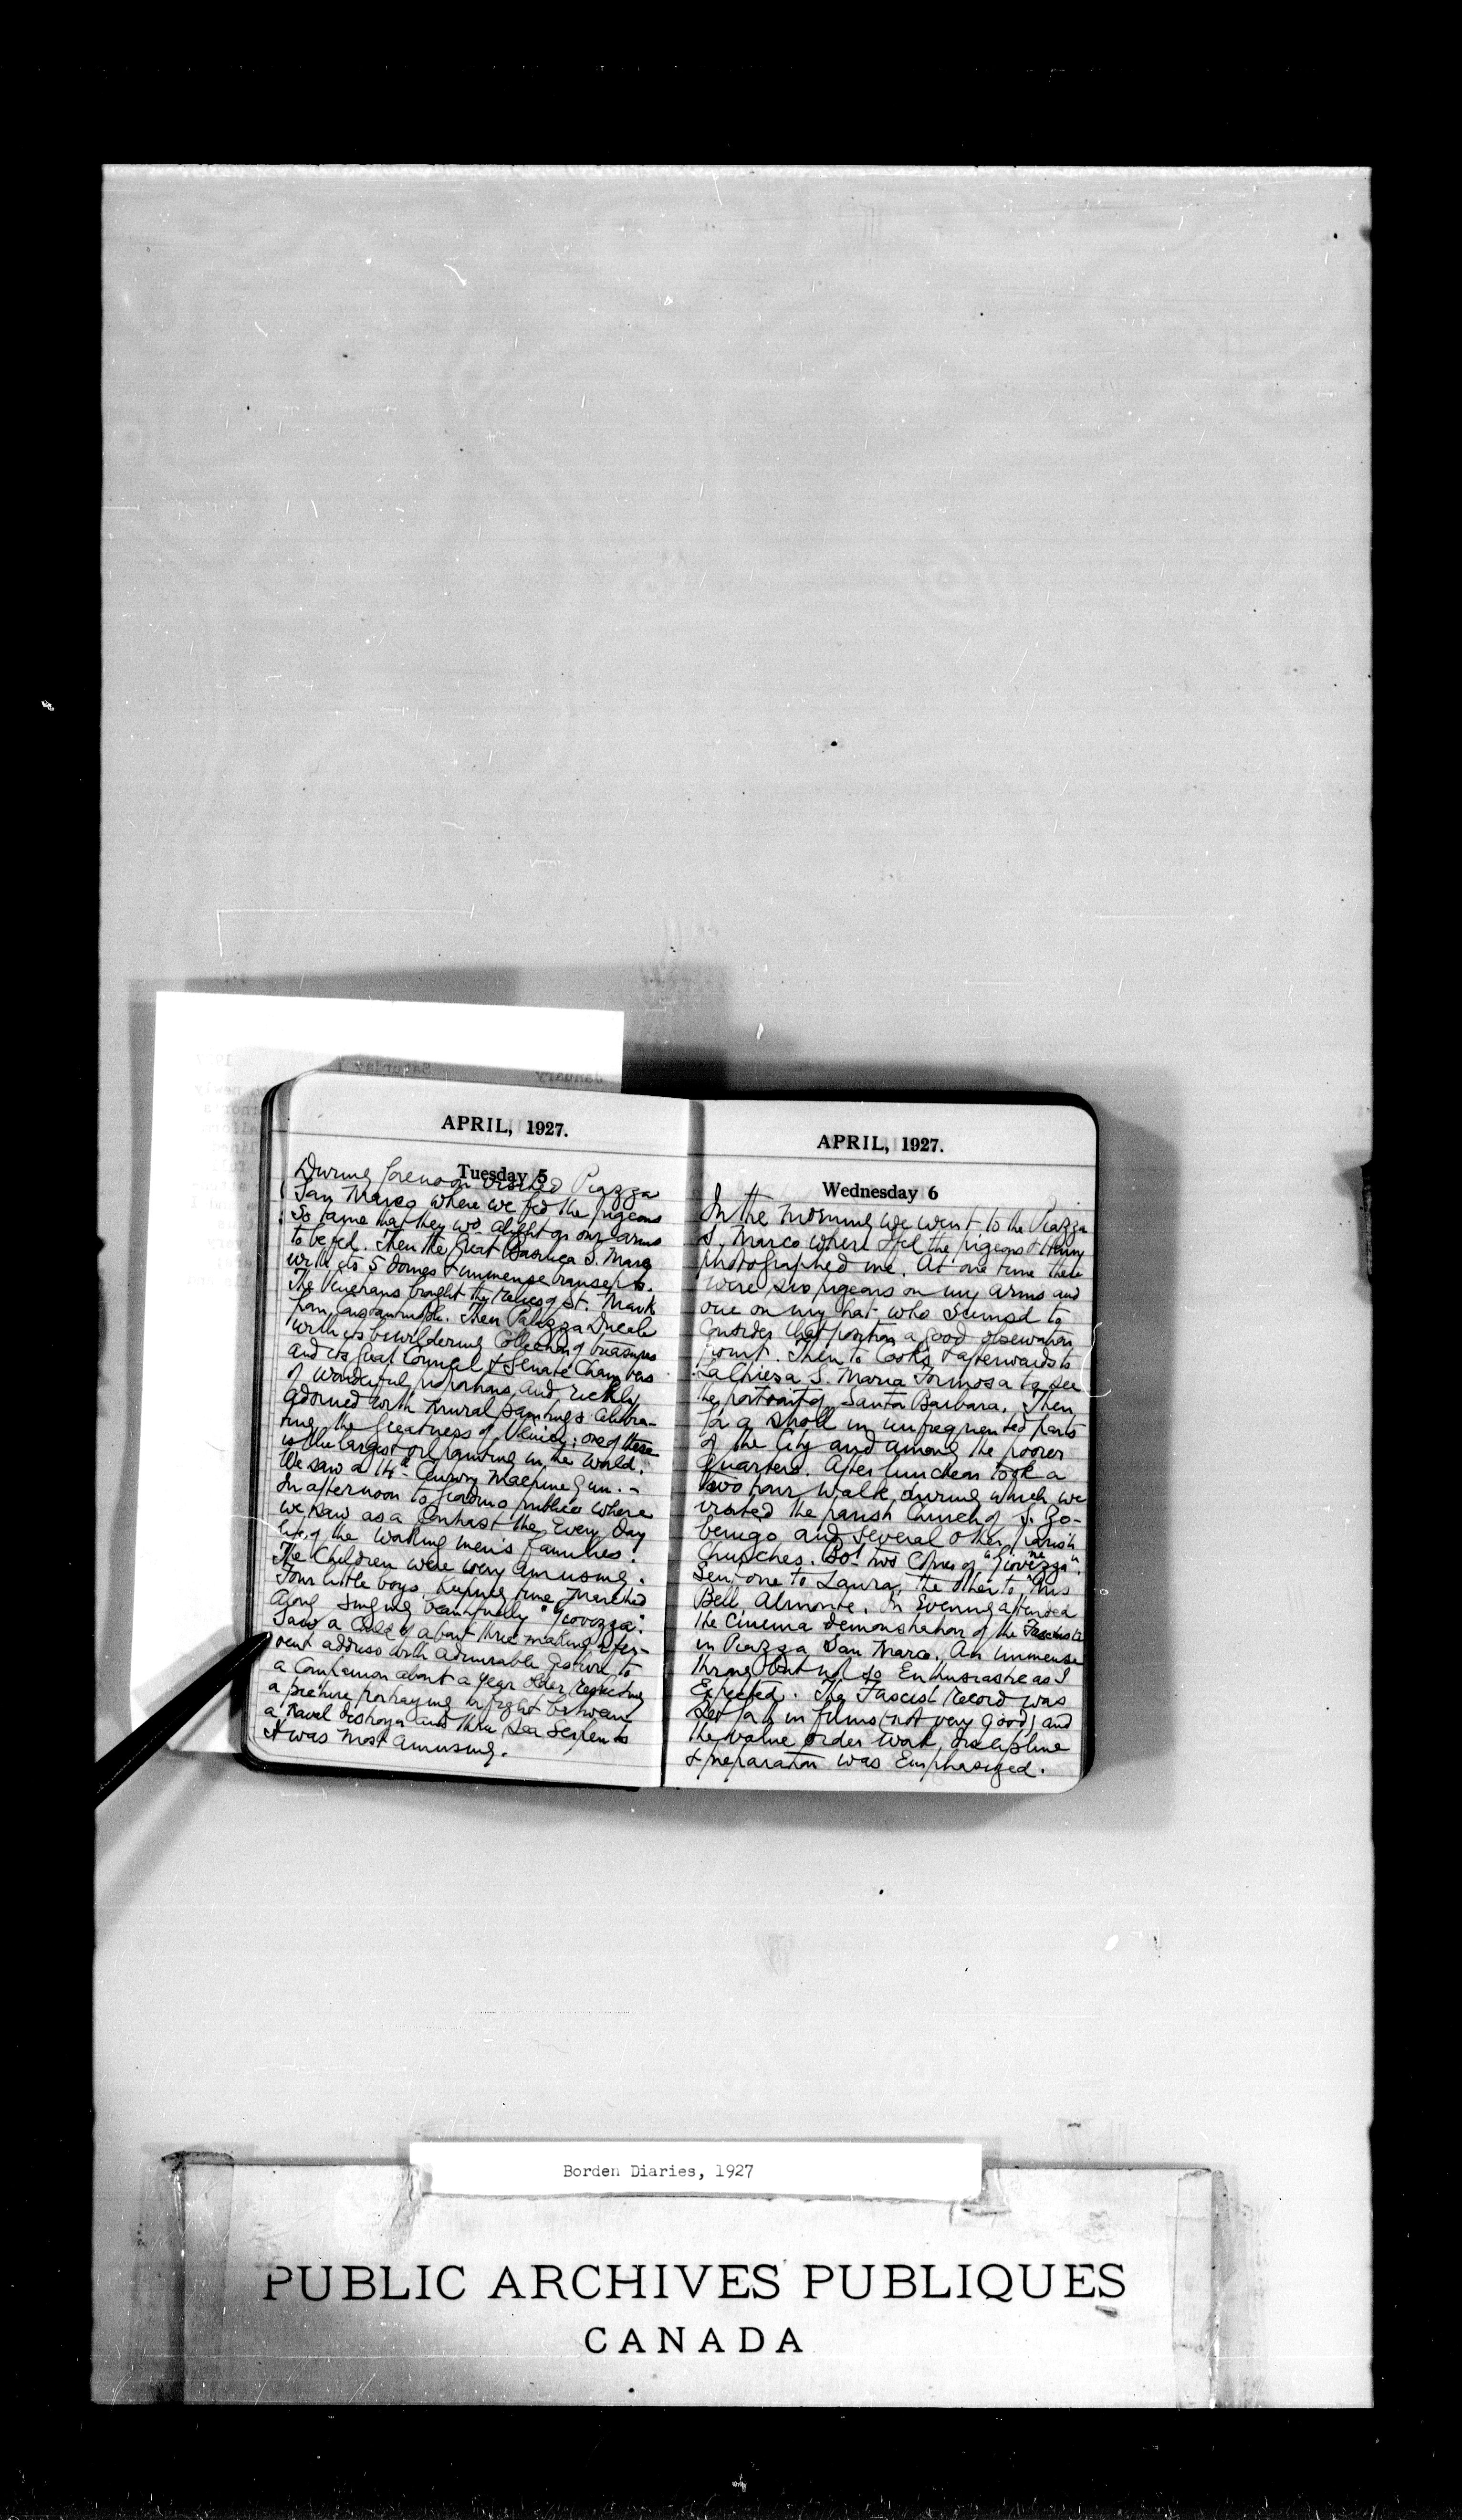 APRIL, 1927.
Tuesday 5
During forenoon visited Piazza
San Marco where we fed the pigeons
So tame that they wd. alight on our arms
to be fed. Then the great Basilica S. Marco
with its 5 domes & immense transepts.
The Venetians brought the relics of St. Mark
from Constantinople. Then Palazza Ducale
with its bewildering Collection of treasures
and its great Council & Senate Chambers
of wonderful proportions and richly
adorned with mural paintings celebra-
ting the greatness of Venice; one of these
is the largest oil painting in the world.
We saw a 14th Century Machine Gun. -
In afternoon to Giardino publico where
we saw as a contrast the Every Day
life of the working men's families.
The Children were very amusing.
Four little boys keeping time marched
along singing beautifully "Giovozza".
Saw a Child of about three making a fer-
vent address with admirable gesture to
a Companion about a year older respecting
a picture portraying a fight between
a naval destroyer and three Sea Serpents
It was most amusing.
APRIL, 1927.
Wednesday 6
In the morning we went to the Piazza
S. Marco where I fed the pigeons & Henry
photographed me. At one time there
were six pigeons on my arms and
one on my hat who seemed to
consider that position a good observation
point. Then to Cooks & afterwards to
La Chiesa S. Maria Formosa to see
the portrait of Santa Barbara. Then
for a stroll in unfrequented parts
of the City and among the poorer
Quarters. After luncheon took a
two hour walk during which we
visited the parish Church of S. Zo-
benigo and several other parish
Churches. Bot. two Copies of "Giovinezza".
Sent one to Laura, the other to Mrs
Bell Almonte. In Evening attended
the Cinema demonstration of the Fascista
in Piazza San Marco. An immense
throng but not so Enthusiastic as I
Expected. The Fascist record was
set forth in films (not very good) and
the value order work discipline
& preparation was Emphasized.
Borden Diaries, 1927
PUBLIC ARCHIVES PUBLIQUES
CANADA